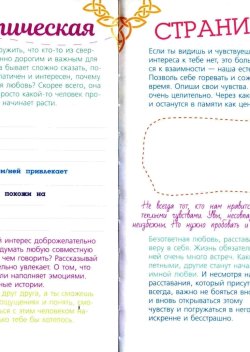 ическая
ружить, что кто-то из свер-
нно дорогим и важным для
а бывает сложно сказать, по-
матичен и интересен, почему
я любовь? Скорее всего, она
росто какой то человек про-
начинает расти.
ем/ней привлекает
похожи на
й интерес доброжелательно
думает твою совместную
чем говорить? Рассказывай
ельно увлекает. О том, что
наполняет эмоциями.
ные истории.
друг друга, и ты сможешь
ощущениям и понять, сме-
ься с этим человеком на-
ько тебе бы хотелось.
СТРАНИ
Если ты видишь и чувствуе
интереса к тебе нет, это бол
ся к взаимности — наша ест
Позволь себе горевать и сож
время. Опиши свои чувства.
очень целительно. Через как
и останутся в памяти как цен
Не всегда тот, кто нам нравит
теплыми чувствами. Увы, несвобод
неизбежны. Но нужно проводить и
Безответная любовь, расстава
веру в себя. Жизнь обязательн
ей очень много встреч. Какие
летными, другие станут начал
имной любви. И несмотря на
расставания, который присут
всегда, важно не бояться вн
и вновь открывать этому
чувству и погружаться в него
искренне и бесстрашно.